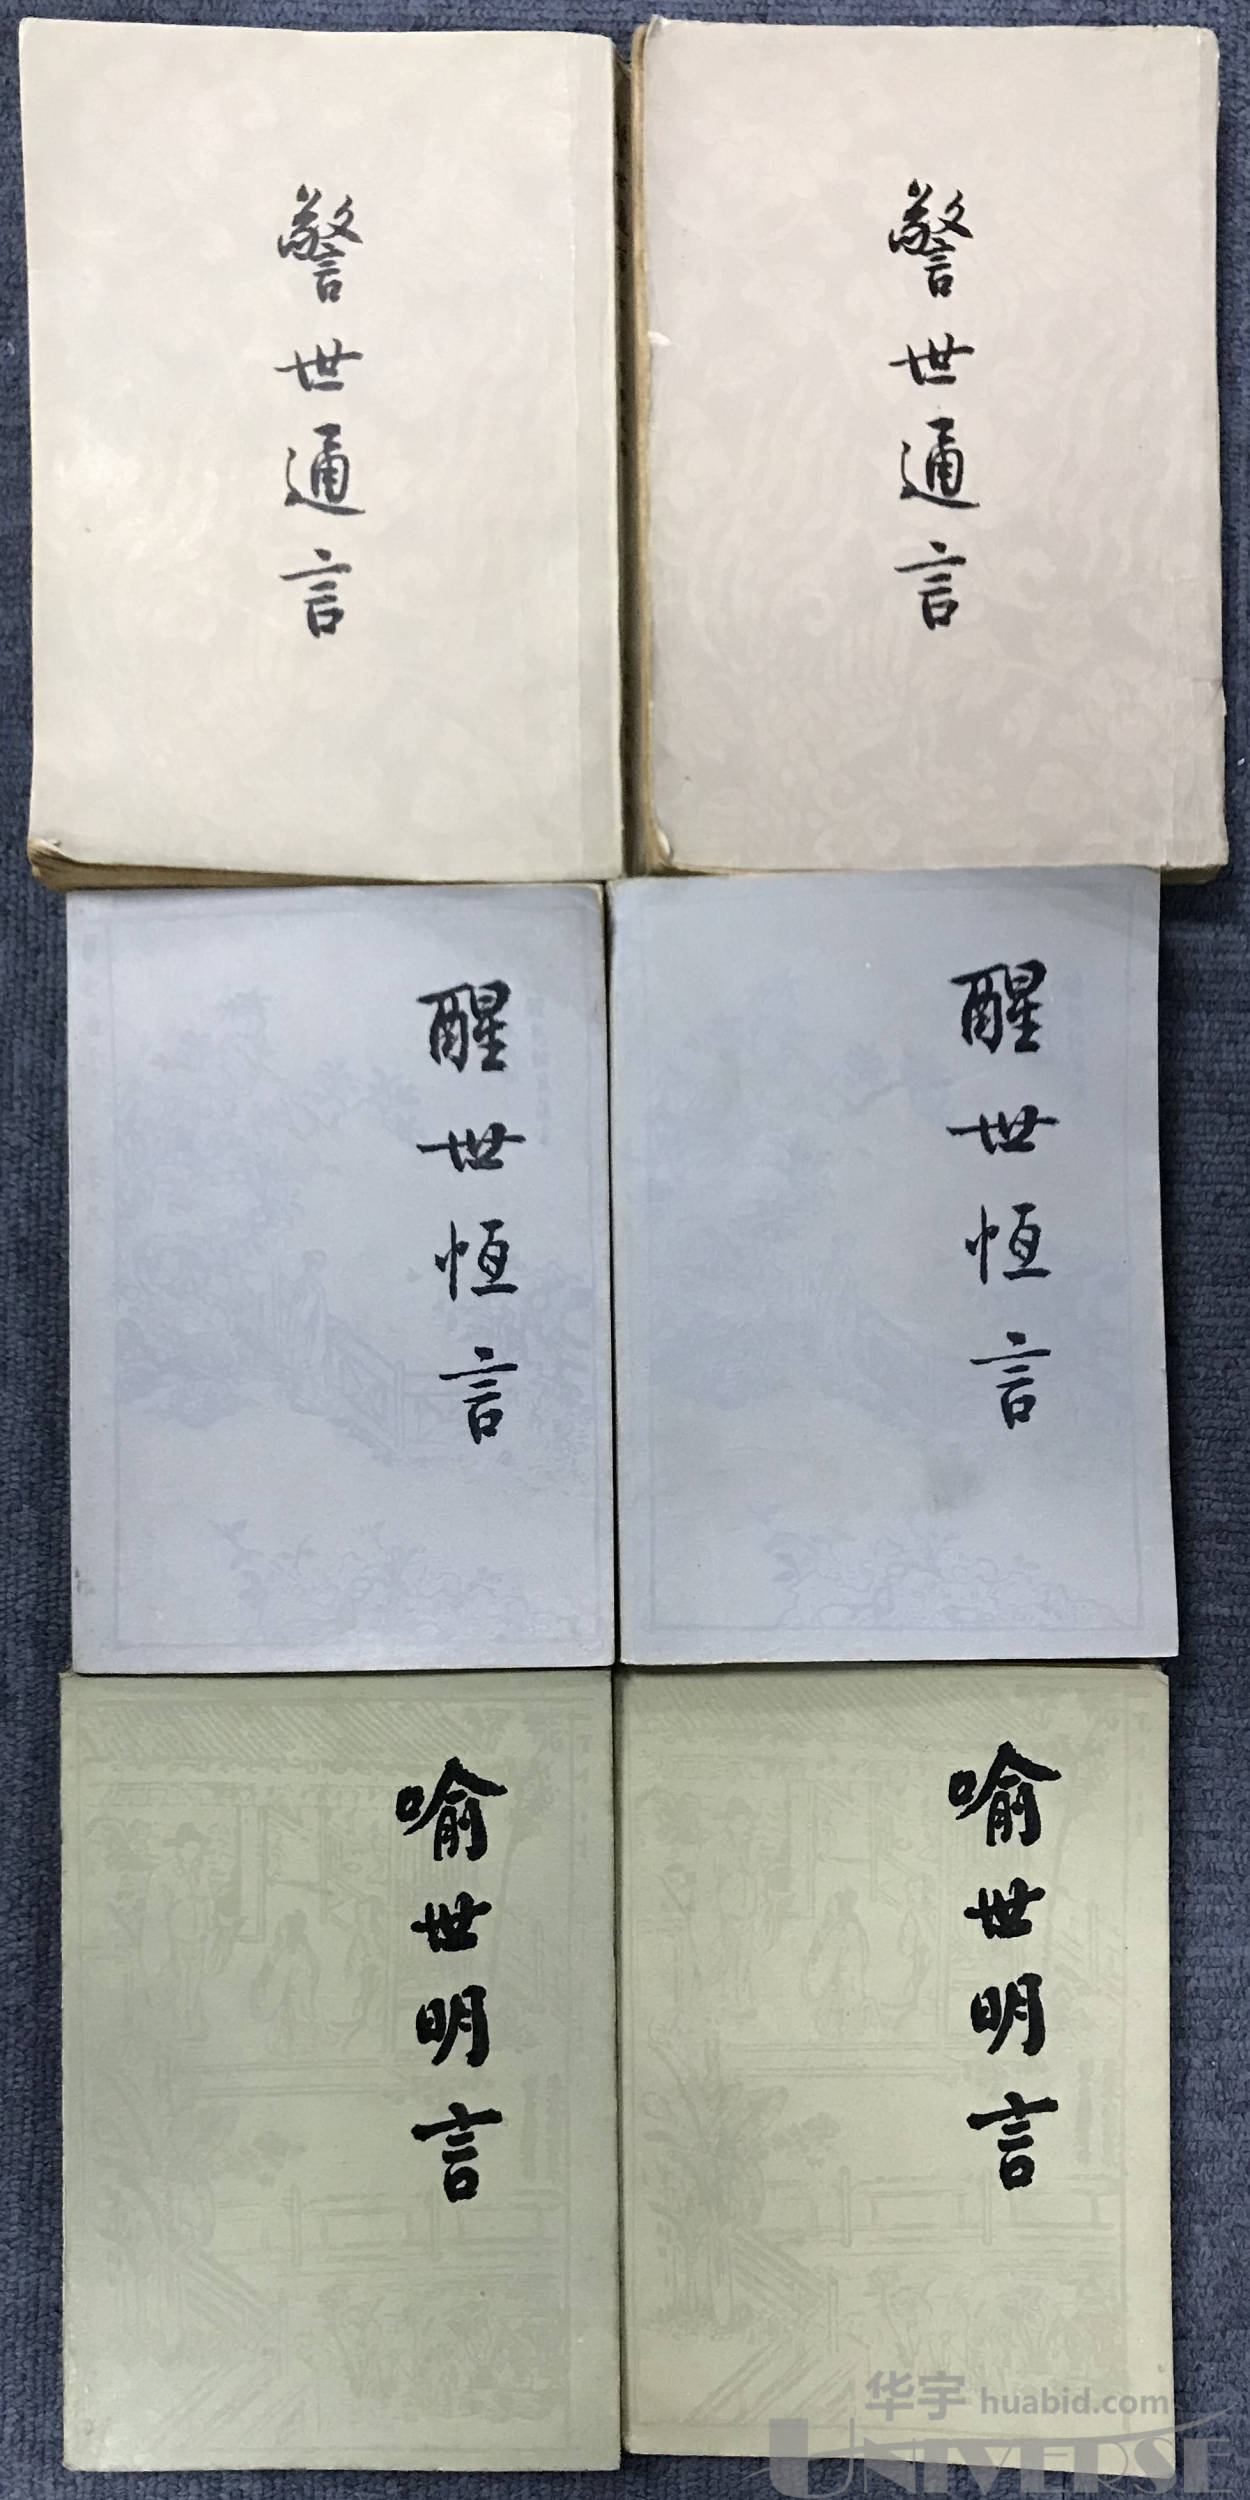 警世通言
警世通言
醒世恆言
醒世恆言
喻世明言
喻世明言
华宇 huabid.com
UNIVERSE